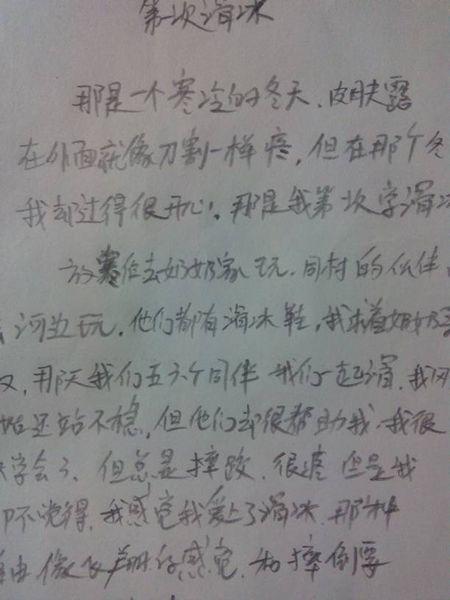 第次滑冰
那是一个寒冷的冬天、皮肤露
在外面就像刀割一样疼,但在那个冬
我却过得很开心。那是我第次学滑冰
放寒假去奶奶家玩.同村的伙伴
河边玩.他们都有滑冰鞋,我求着奶奶
又,那天我们五六个同伴 我们一起滑.我刚
始还站不稳,但他们却很帮助我.我很
学会了、但总是摔跤.很疼 但是我
不觉得.我感觉我爱上了滑冰.那种
自由像飞翔的感觉.和摔倒